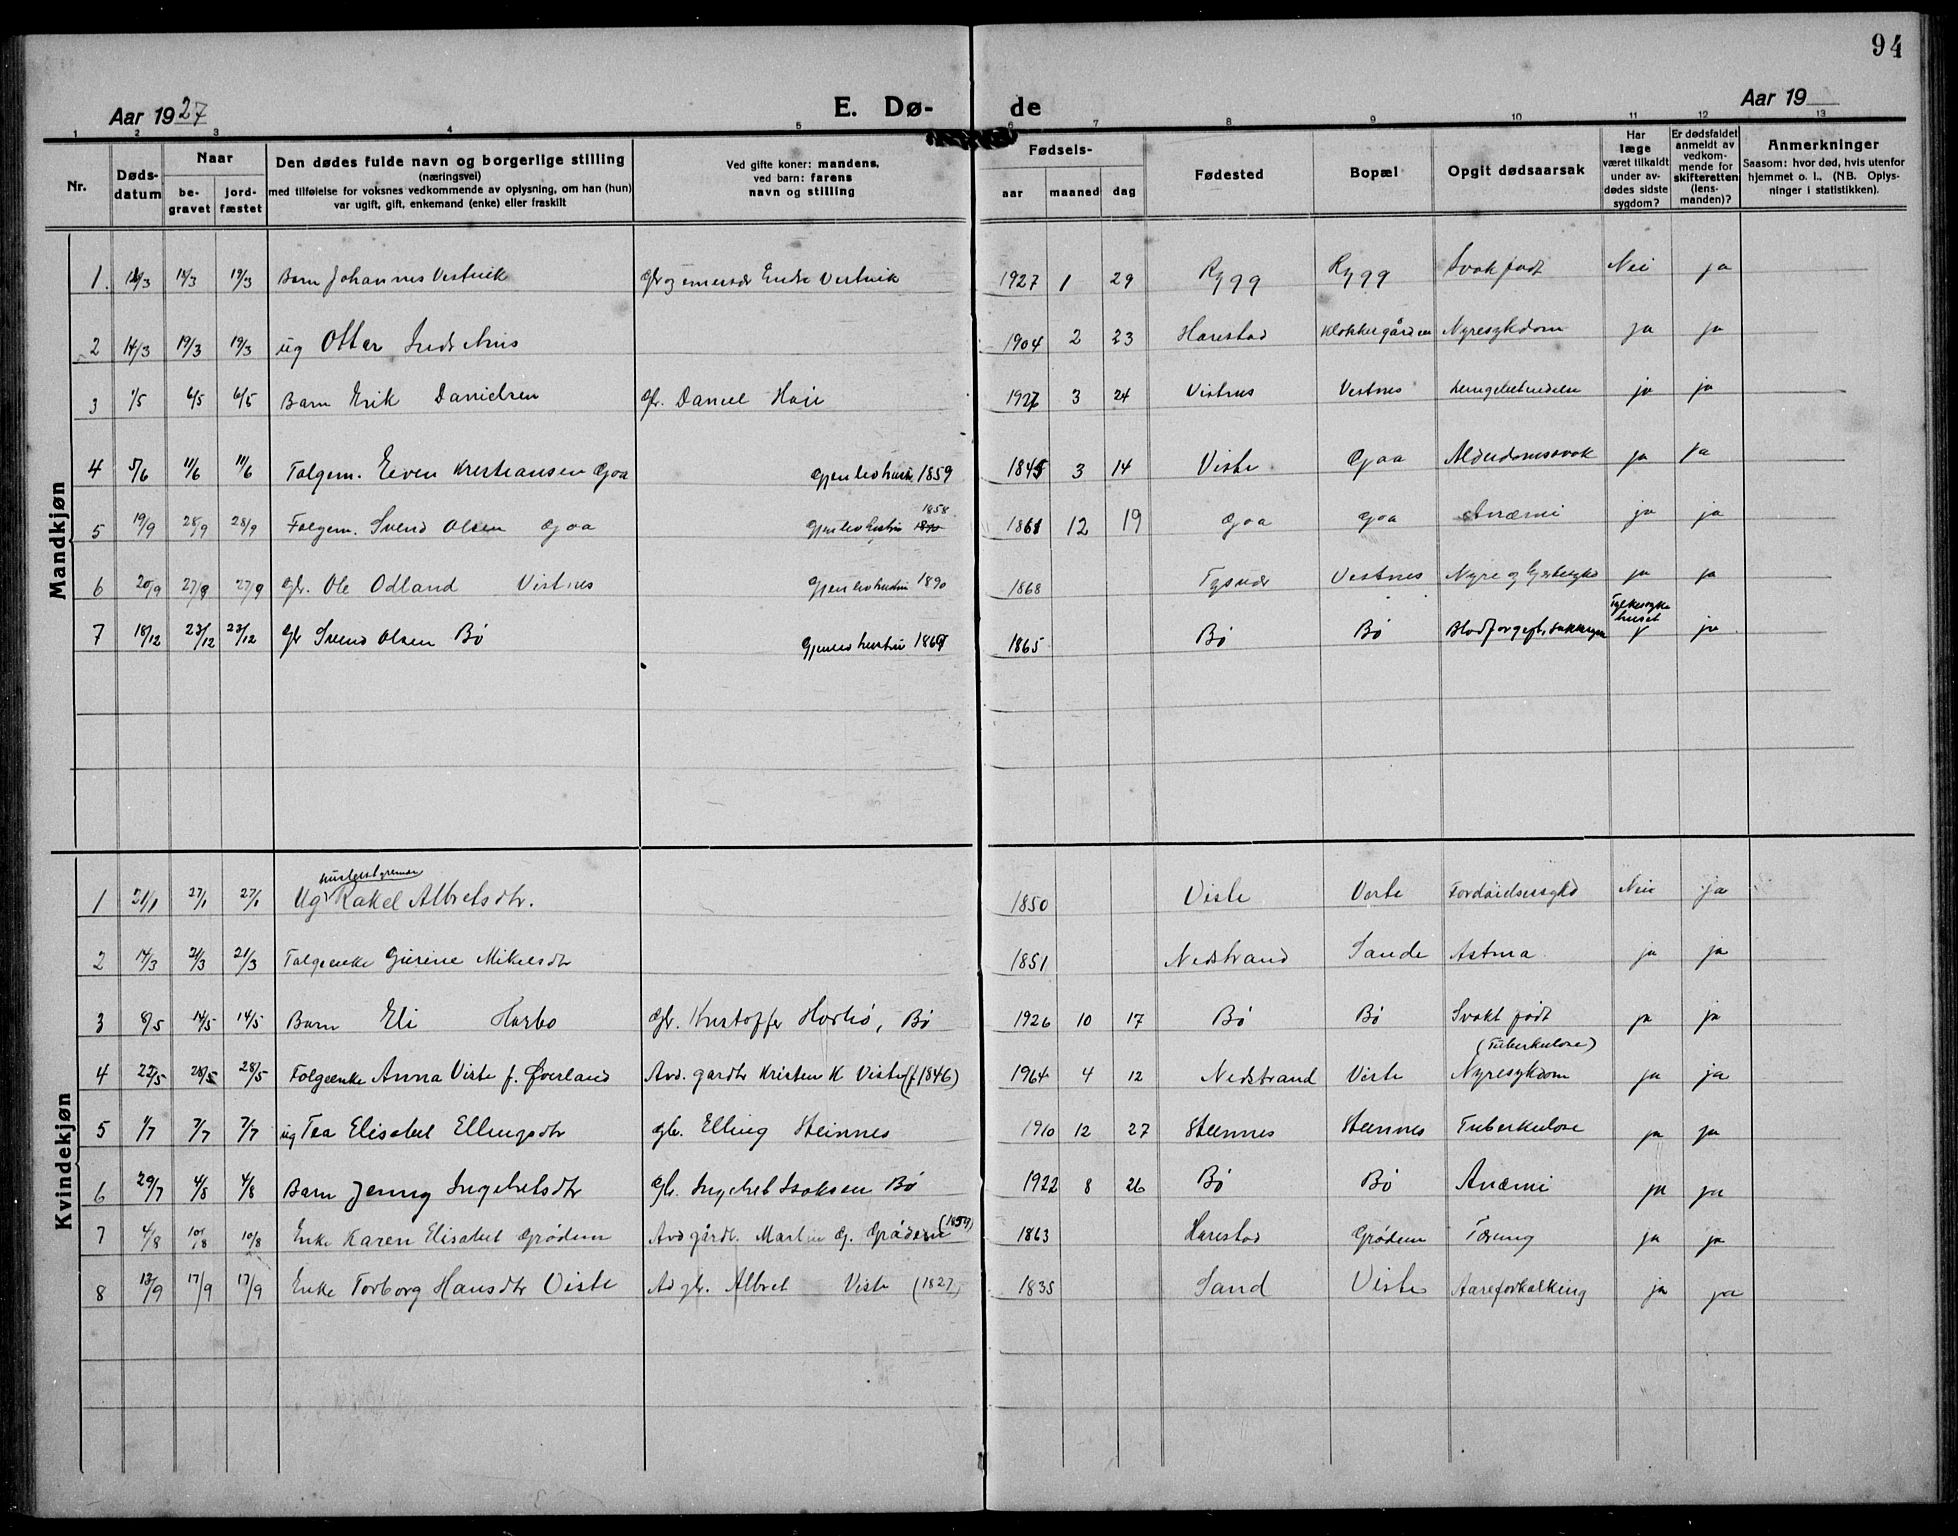 94
Aar 1927 E. Dø- de Aar 19
1 2 3 4 5 6 7 8 9 10 11 12 13
Nr. Døds-datum Naar be-gravet jord-fæstet Den dødes fulde navn og borgerlige stilling (næringsvei) med tilføielse for voksnes vedkommende av oplysning, om han (hun) var ugift, gift, enkemand (enke) eller fraskilt Ved gifte koner: mandens, ved barn: farens navn og stilling Fødsels- aar maaned dag Fødested Bopæl Opgit dødsaarsak Har læge været tilkaldt under av-dødes sidste sygdom? Er dødsfaldet anmeldt av vedkom-mende for skifteretten (lens-manden)? Anmerkninger Saasom: hvor død, hvis utenfor hjemmet o. l., (NB. Oplys-ninger i statistikken).
Mandkjøn
1. 19/3 19/3 Barn Johannes Vestvik Endre Vestvik 1927 1 29 Rygg Rygg Svakfødt Nei ja
2 14/3 19/3 19/3 ug Ottar 1904 2 23 Harestad Klokkergården Nyresykdom ja ja
3 1/5 6/5 6/5 Barn Erik Danielsen Gbr. Daniel 1927 3 24 Vistnes Vestnes ja ja
4 5/6 11/6 11/6 Folgem. Eiven Kristiansen Goa Gjenlev hustru 1859 1845 3 14 Viste Goa Alderdomssvak ja ja
5 19/9 28/9 28/9 Folgem. Svend Olsen Goa Gjenlev hustru 1858 1861 12 19 Goa Goa Anæmi ja ja
6 20/9 27/9 27/9 Gbr. Ole Odland Vistnes Gjenlev hustru 1890 1868 Tysvær Vestnes Nyre og Hjertesykd ja ja
7 18/12 23/12 23/12 Gbr Svend Olsen Bø Gjenlev hustru 1865 Bø Bø Blodforgift. Fylkessykehuset ja
Kvindekjøn
1 21/1 27/1 27/1 Ug husbestyrerinde Rakel Albretsdtr. 1850 Viste Viste Fordøielsessykd Nei ja
2 14/3 21/3 21/3 Folgeenke Gurine Mikelsdtr 1851 Nedstrand Sande Astma ja ja
3 8/5 14/5 14/5 Barn Eli Harbo Gbr. Kristoffer Harbø, Bø 1926 10 17 Bø Bø Svakt født (Tuberkulose) ja ja
4 22/5 28/5 28/5 Folgeenke Anna Viste f. Øverland Avd. gardbr Kristen K Viste (f 1846) 1964 4 12 Nedstrand Viste Nyresykdom ja ja
5 1/7 7/7 7/7 ug Tea Elisabet Ellingsdtr gbr. Elling Steinnes 1910 12 27 Steinnes Steinnes Tuberkulose ja ja
6 29/7 4/8 4/8 Barn Jenny Ingebretsdtr Gbr. Ingebret Isaksen Bø 1922 8 26 Bø Bø Anæmi ja ja
7 4/8 10/8 10/8 Enke Karen Elisabet Grødem Avd gårdbr. Martin G. Grødem 1863 Harestad Grødem Tæring ja ja
8 13/9 17/9 17/9 Enke Torborg Hansdtr Viste Avd gbr. Albret Viste (1827) 1835 Sand Viste Aareforkalking ja ja